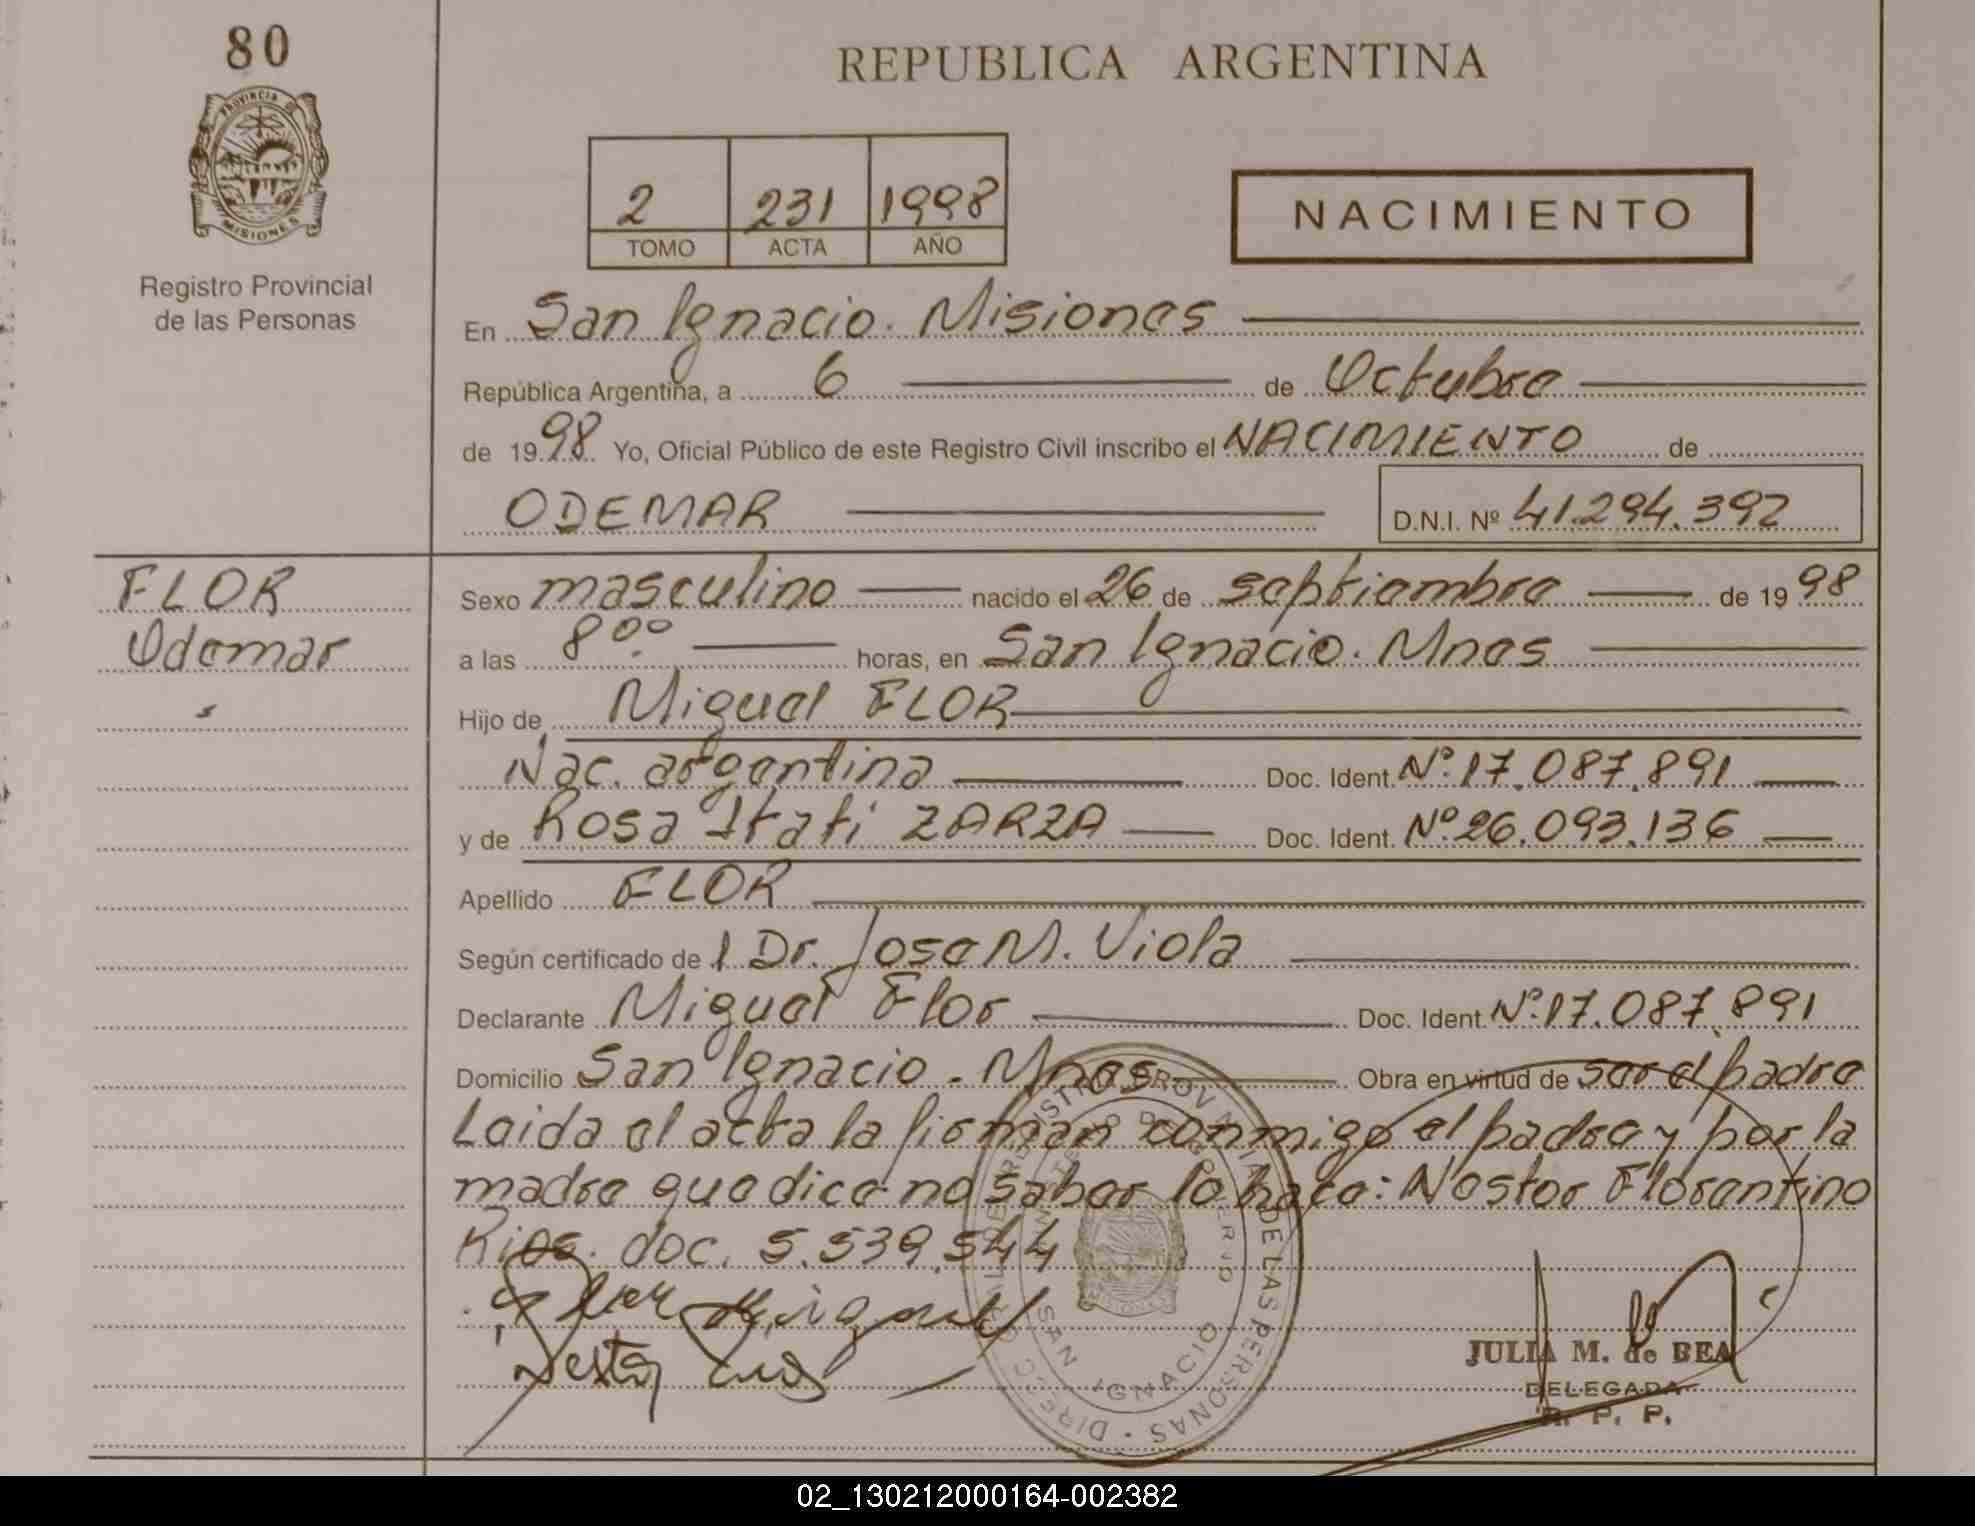 80
REPUBLICA ARGENTINA
PROVINCIA
MISIONES
Registro Provincial
de las Personas
2 231 1998
TOMO ACTA AÑO
NACIMIENTO
En San Ignacio. Misiones
República Argentina, a 6 de Octubre
de 1998 Yo, Oficial Público de este Registro Civil inscribo el NACIMIENTO de
ODEMAR D.N.I. Nº 41.294.392
FLOR
Odemar
Sexo masculino nacido el 26 de septiembre de 1998
a las 8ºº horas, en San Ignacio. Mnes
Hijo de Miguel FLOR
Nac. argentina Doc. Ident. Nº.17.087.891
y de Rosa Itati ZARZA Doc. Ident. Nº.26.093.136
Apellido FLOR
Según certificado de l Dr. Jose M. Viola
Declarante Miguel Flor Doc. Ident. Nº.17.087.891
Domicilio San Ignacio. Mnes Obra en virtud de ser el padre
Leida el acta la firman conmigo el padre y por la
madre que dice no saber lo hace: Nestor Florentino
Rios. doc. 5.539.544
Flor Miguel
Nestor Rios
DIREC. GRAL. DE REGISTRO PROVINCIAL DE LAS PERSONAS
MINISTERIO DE GOBIERNO
MISIONES
SAN IGNACIO
JULIA M. de BEA
DELEGADA
R. P. P.
02_130212000164-002382